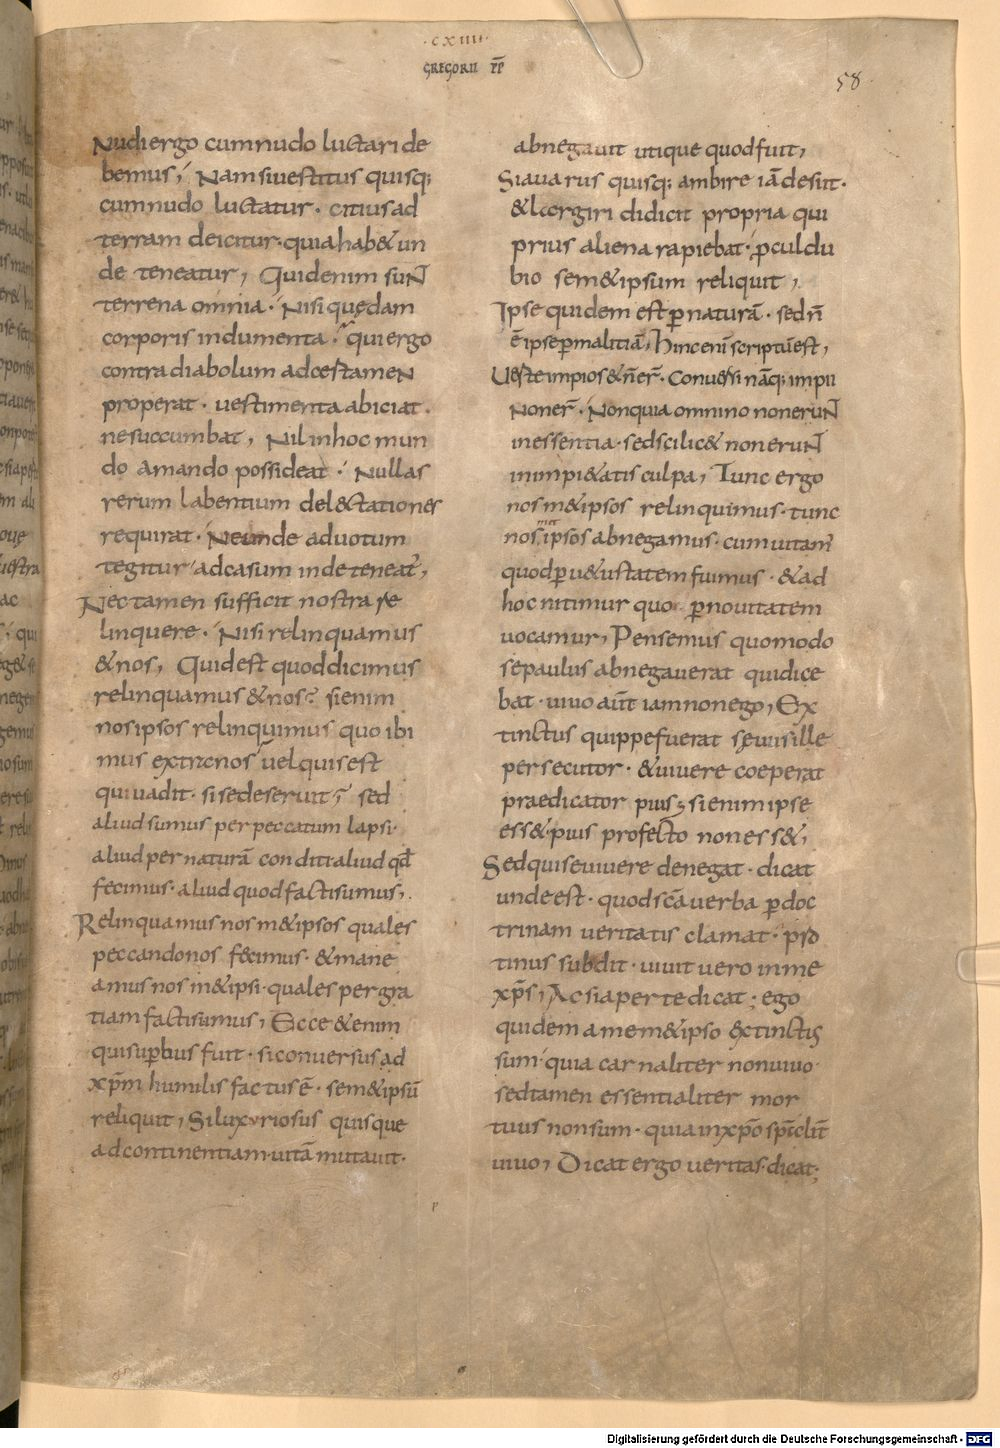 ·CXIIII·
GREGORII PP̄
58
Nudi ergo cum nudo luctari de
bemus; Nam si uestitus quisq;
cum nudo luctatur· citius ad
terram deicitur· quia hab& un
de teneatur; Quid enim sunt
terrena omnia· Nisi quędam
corporis indumenta· qui ergo
contra diabolum ad certamen
properat· uestimenta abiciat·
ne succumbat; Nil in hoc mun
do amando possideat· Nullas
rerum labentium del&ctationes
requirat· Ne unde ad uotum
tegitur ad casum inde teneat̃;
Nec tamen sufficit nostra re
linquere· Nisi relinquamus
& nos; Quid est quod dicimus
relinquamus & nos? si enim
nos ipsos relinquimus quo ibi
mus extra nos uel quis est
qui uadit· si se deseruit? sed
aliud sumus per peccatum lapsi·
aliud per naturā conditi aliud qđ
fecimus· aliud quod facti sumus;
Relinquamus nosm&ipsos quales
peccando nos fecimus· & mane
amus nosm&ipsi· quales per gra
tiam facti sumus; Ecce &enim
qui supbus fuit· si conuersus ad
xp̄m humilis factus ē· sem&ipsū
reliquit; Si luxuriosus quisque
ad continentiam uitā mutauit·
abnegauit utique quod fuit;
Si auarus quisq; ambire iā desiit·
& lærgiri didicit propria qui
prius aliena rapiebat· pculdu
bio sem&ipsum reliquit;
Ipse quidem est p naturā· sed ñ
ē ipse p malitiā; hinc eni scriptū est;
Uerte impios & ñ er̃· Conuersi nāq; impii
Non er̃· Non quia omnino non erunt
in essentia· sed scilic& non erunt
in impi&atis culpa; Tunc ergo
nosm&ipsos relinquimus· tunc
nos m& ipsos abnegamus· cum uitam̃
quod p u&ustatem fuimus· & ad
hoc nitimur quo p nouitatem
uocamur; Pensemus quomodo
se paulus abnegauerat qui dice
bat· uiuo aūt iam non ego; Ex
tinctus quippe fuerat sęuus ille
persecutor· & uiuere coeperat
praedicator pius; si enim ipse
ess& pius profecto non ess&;
Sed qui se uiuere denegat· dicat
unde est· quod sc̄a uerba p doc
trinam ueritatis clamat· p̄so
tinus subdit· uiuit uero in me
xp̄s; Ac si aperte dicat; ego
quidem a mem&ipso extinctus
sum· quia carnaliter non uiuo·
sed tamen essentialiter mor
tuus non sum· quia in xp̄o sp̄iclit̄
uiuo; Dicat ergo ueritas· dicat;
Digitalisierung gefördert durch die Deutsche Forschungsgemeinschaft - DFG